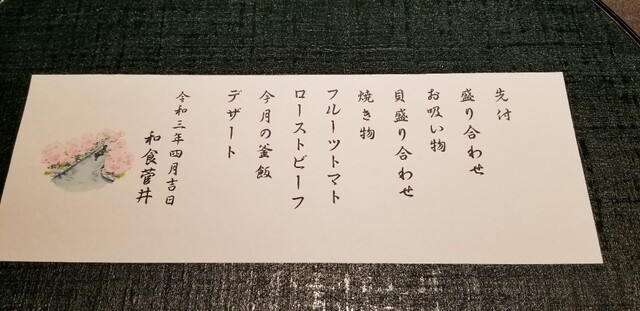 先付
盛り合わせ
お吸い物
貝盛り合わせ
焼き物
フルーツトマト
ローストビーフ
今月の釜飯
デザート
令和三年四月吉日
和食菅井